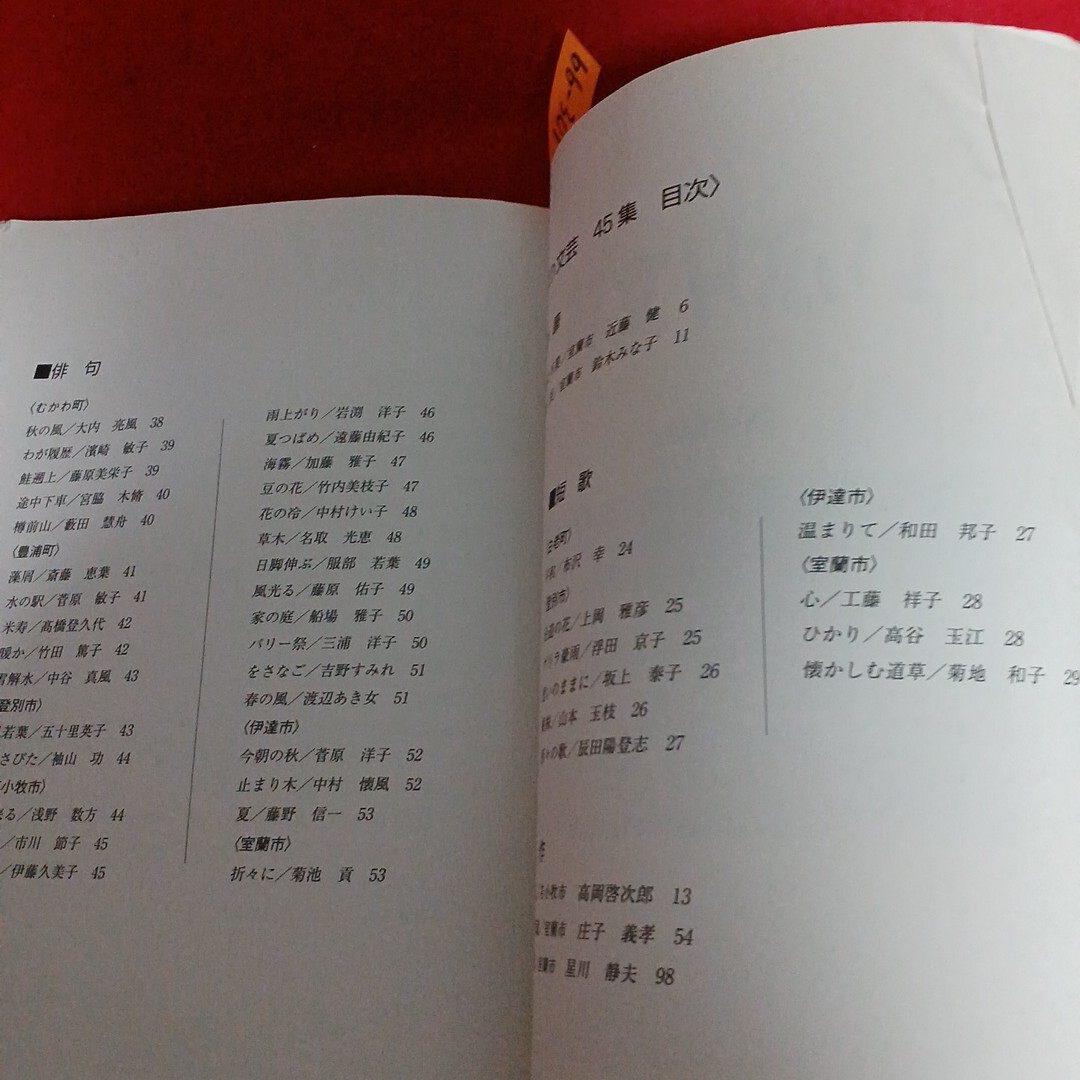 ■俳 句
〈むかわ町〉
秋の風／大内 亮風 38
わが履歴／濱崎 敏子 39
鮭遡上／藤原美栄子 39
途中下車／宮脇 木脩 40
樽前山／藪田 慧舟 40
〈豊浦町〉
藻屑／斎藤 恵葉 41
水の駅／菅原 敏子 41
米寿／高橋登久代 42
暖か／竹田 篤子 42
解水／中谷 真風 43
登別市〉
若葉／五十里英子 43
さびた／袖山 功 44
小牧市〉
る／浅野 数方 44
／市川 節子 45
／伊藤久美子 45
雨上がり／岩渕 洋子 46
夏つばめ／遠藤由紀子 46
海霧／加藤 雅子 47
豆の花／竹内美枝子 47
花の冷／中村けい子 48
草木／名取 光恵 48
日脚伸ぶ／服部 若葉 49
風光る／藤原 佑子 49
家の庭／船場 雅子 50
パリー祭／三浦 洋子 50
をさなご／吉野すみれ 51
春の風／渡辺あき女 51
〈伊達市〉
今朝の秋／菅原 洋子 52
止まり木／中村 懐風 52
夏／藤野 信一 53
〈室蘭市〉
折々に／菊池 貢 53
文芸 45集 目次〉
／室蘭市 近藤 健 6
／室蘭市 鈴木みな子 11
■短 歌
老町〉
／布沢 幸 24
登別市〉
の花／上岡 雅彦 25
ゲリラ豪雨／浮田 京子 25
いのままに／坂上 泰子 26
／山本 玉枝 26
の歌／辰田陽登志 27
〈伊達市〉
温まりて／和田 邦子 27
〈室蘭市〉
心／工藤 祥子 28
ひかり／高谷 玉江 28
懐かしむ道草／菊地 和子 29
作
小牧市 高岡啓次郎 13
／室蘭市 庄子 義孝 54
室蘭市 星川 静夫 98